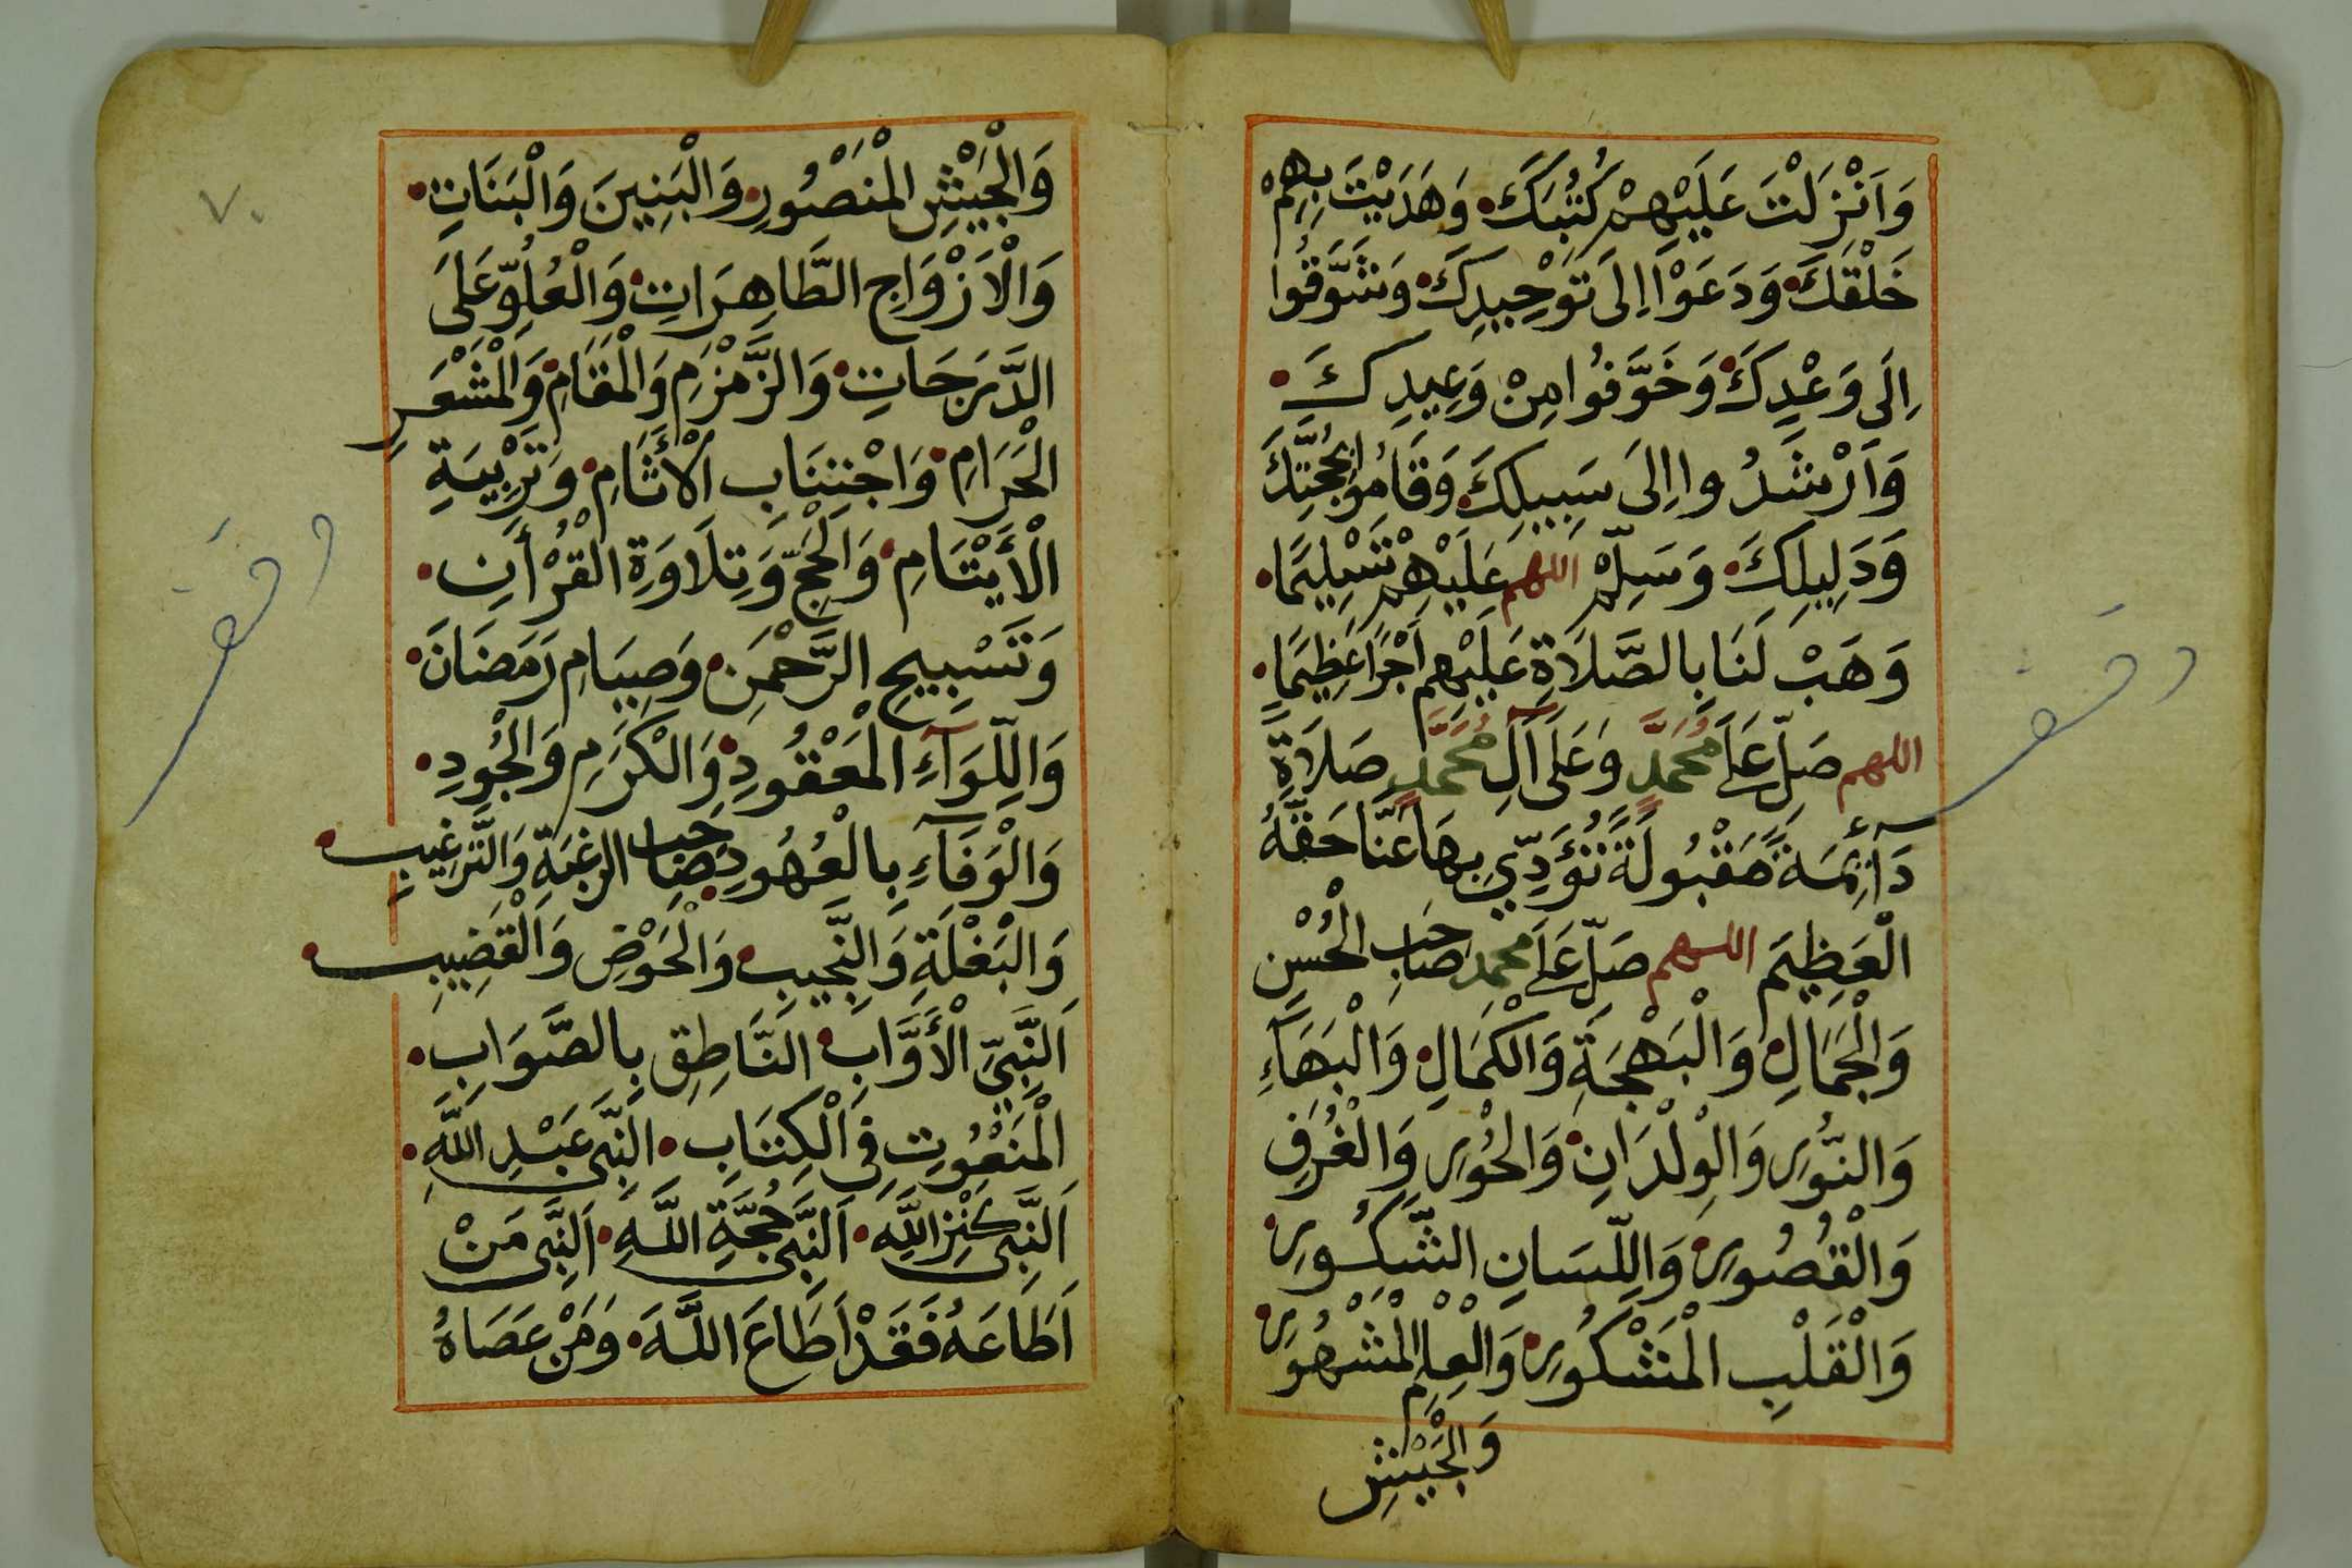 وَاَنْزَلْتَ عَلَيْهِمْ كُتُبَكَ وَهَدَيْتَ بِهِمْ
خَلْقَكَ وَدَعَوْا اِلَى تَوْحِيدِكَ وَشَوَّقُوا
اِلَى وَعْدِكَ وَخَوَّفُوا مِنْ وَعِيدِكَ
وَاَرْشَدُوا اِلَى سَبِيلِكَ وَقَامُوا بِحُجَّتِكَ
وَدَلِيلِكَ وَسَلِّمْ اللهم عَلَيْهِمْ تَسْلِيمًا
وَهَبْ لَنَا بِالصَّلَاةِ عَلَيْهِم اَجْرًا عَظِيمًا
اللهم صَلِّ عَلَى مُحَمَّدٍ وَعَلَى آلِ مُحَمَّدٍ صَلَاةً
دَآئِمَةً مَقْبُولَةً تُؤَدِّي بِهَا عَنَّا حَقَّهُ
الْعَظِيمَ اللهم صَلِّ عَلَى محمد صَاحِبِ الْحُسْنِ
وَالْجَمَالِ وَالْبَهْجَةِ وَالْكَمَالِ وَالْبَهَآءِ
وَالنُّورِ وَالْوِلْدَانِ وَالْحُورِ وَالْغُرَفِ
وَالْقُصُورِ وَاللِّسَانِ الشَّكُورِ
وَالْقَلْبِ الْمَشْكُورِ وَالْعِلْمِ الْمَشْهُورِ
وَالْجَيْشِ
وقف
٧٠
وَالْجَيْشِ الْمَنْصُورِ وَالْبَنِينَ وَالْبَنَاتِ
وَالْاَزْوَاجِ الطَّاهِرَاتِ وَالْعُلُوِّ عَلَى
الدَّرَجَاتِ وَالزَّمْزَمِ وَالْمَقَامِ وَالْمَشْعَرِ
الْحَرَامِ وَاجْتِنَابِ الْأَثَامِ وَتَرْبِيَةِ
الْأَيْتَامِ وَالْحَجِّ وَتِلَاوَةِ الْقُرْأَنِ
وَتَسْبِيحِ الرَّحْمَنِ وَصِيَامِ رَمَضَانَ
وَاللِّوَآءِ الْمَعْقُودِ وَالْكَرَمِ وَالْجُودِ
وَالْوَفَآءِ بِالْعُهُودِ صَاحِبِ الرغْبَةِ وَالتَّرْغِيبِ
وَالْبَغْلَةِ وَالنَّجِيبِ وَالْحَوْضِ وَالْقَضِيبِ
اَلنَّبِيِّ الْأَوَّابِ النَّاطِقِ بِالصَّوَابِ
الْمَنْعُوتِ فِي الْكِتَابِ النَّبِيِّ عَبْدِ اللَّهِ
اَلنَّبِيِّ كَنْزِ اللَّهِ اَلنَّبِيِّ حُجَّةِ اللَّهِ اَلنَّبِيِّ مَنْ
اَطَاعَهُ فَقَدْ اَطَاعَ اللَّهَ وَمَنْ عَصَاهُ
وقف